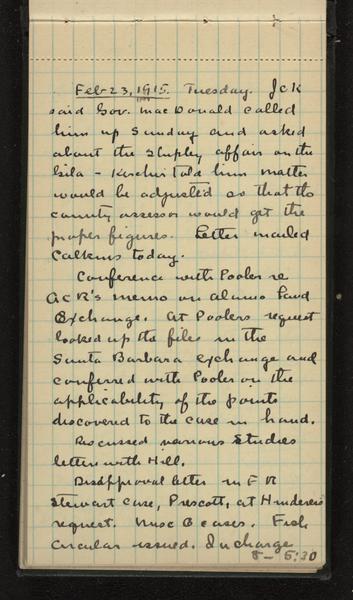 Feb 23, 1915. Tuesday. JcK
said Gov. MacDonald called
him up Sunday and asked
about the Shipley affair on the
Gila - Kirchin told him matter
would be adjusted so that the
county assessor would get the
proper figures. Letter mailed
Calkins today.
Conference with Pooler re
ACR's memo on Alamo Land
Exchange. At Poolers request
looked up the files in the
Santa Barbara exchange and
conferred with Pooler on the
applicability of the points
discovered to the case in hand.
Discussed various Studies
letter with Hill.
Disapproval letter in F R
Stewart case, Prescott, at
request. Misc G cases. Fish
circular issued. In charge
8 - 5:30